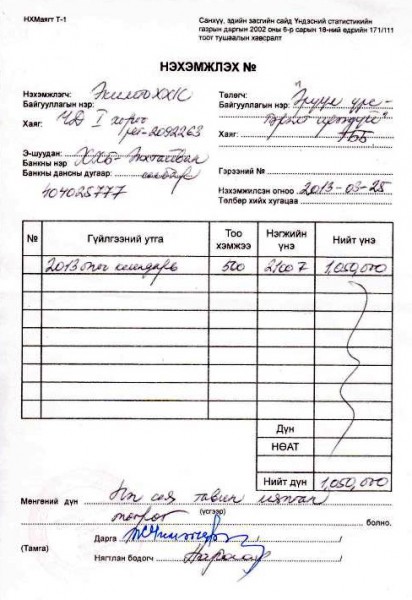 НХМаягт Т-1
Санхүү, эдийн засгийн сайд Үндэсний статистикийн
газрын даргын 2002 оны 6-р сарын 18-ний өдрийн 171/111
тоот тушаалын хавсралт
НЭХЭМЖЛЭХ №
Нэхэмжлэгч:
ХХК
Байгууллагын нэр:
Хаяг: ЧД I хороо
рег-2092263
Э-шуудан:
Банкны нэр ХХБ-
Банкны дансны дугаар:
404025777
Төлөгч: "Эрүүл үрс-
Байгууллагын нэр:
Хаяг: УБ
Гэрээний №
Нэхэмжилсэн огноо 2013-03-25
Төлбөр хийх хугацаа
№ Гүйлгээний утга Тоо хэмжээ Нэгжийн үнэ Нийт үнэ
2013 оны календарь 500 2100₮ 1,050,000
Дүн
НӨАТ
Нийт дүн 1,050,000
Мөнгөний дүн Нэг сая тавин мянган
төгрөг
(үсгээр) болно.
Дарга
(Тамга) Нягтлан бодогч